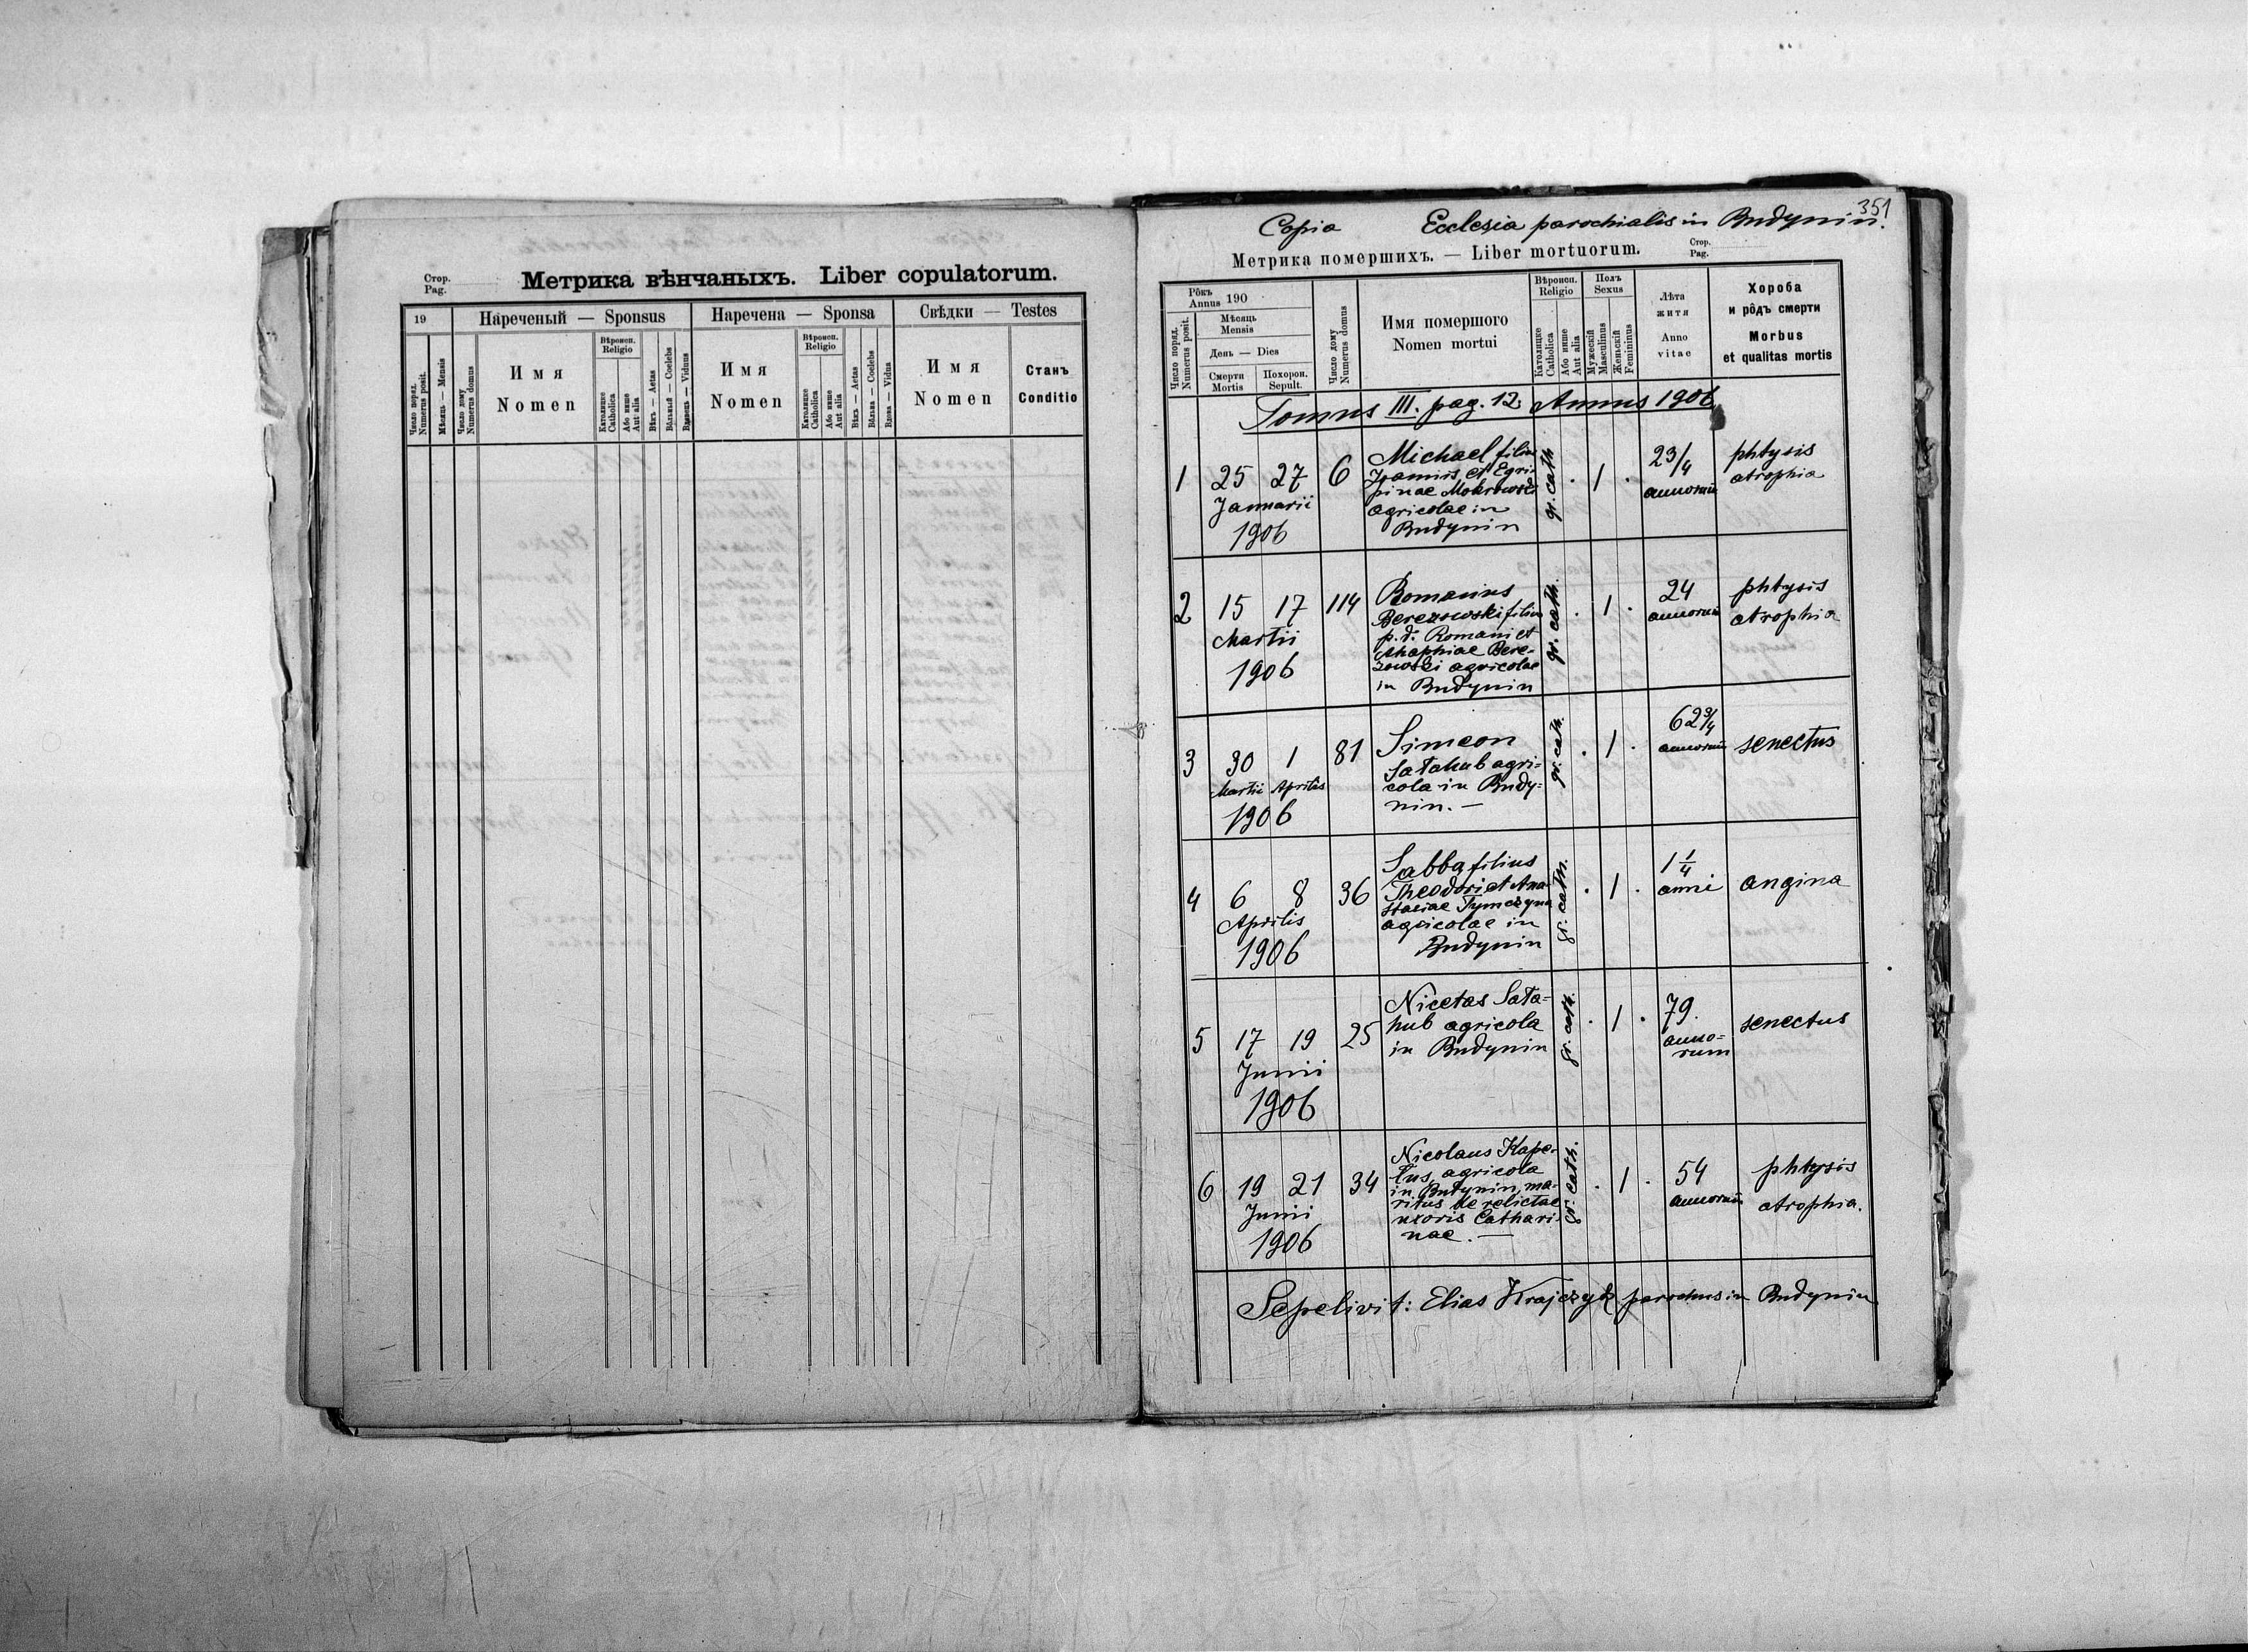 Стор.
Pag.
Метрика вѣнчаныхъ. Liber copulatorum.
19
Нареченый — Sponsus
Наречена — Sponsa
Свѣдки — Testes
Число поряд.
Numerus posit.
Мѣсяць — Mensis
Число дому
Numerus domus
Имя
Nomen
Вѣроисп.
Religio
Католицке
Catholica
Або инше
Aut alia
Вѣкъ — Aetas
Вôльный — Coelebs
Вдовець — Viduus
Имя
Nomen
Вѣроисп.
Religio
Католицке
Catholica
Або инше
Aut alia
Вѣкъ — Aetas
Вôльна — Coelebs
Вдова — Vidua
Имя
Nomen
Станъ
Conditio
351
Copia Ecclesia parochialis in Budynin.
Метрика помершихъ. — Liber mortuorum.
Стор.
Pag.
Рôкъ
Annus 190
Число поряд.
Numerus posit.
Мѣсяць
Mensis
День — Dies
Смерти
Mortis
Похорон.
Sepult.
Число дому
Numerus domus
Имя помершого
Nomen mortui
Вѣроисп.
Religio
Католицке
Catholica
Або инше
Aut alia
Полъ
Sexus
Мужескій
Masculinus
Женьскій
Femininus
Лѣта
житя
Anno
vitae
Хороба
и рôдъ смерти
Morbus
et qualitas mortis
Tomus III. pag. 12. Annus 1906
1 25 27 Januarii 1906 6
Michael filius
Joannis et Egri-
pinae Mokrowski
agricolae in
Budynin
gr. cath. . 1 . 23/4 annorum
phtysis
atrophia
2 15 17 Martii 1906 114
Romanus
Berezowski filius
p. d. Romani et
Ahaphiae Bere-
zowski agricolae
in Budynin
gr. cath. . 1 . 24 annorum
phtysis
atrophia
3 30 Martii 1 Aprilis 1906 81
Simeon
Satahub agri-
cola in Budy-
nin. —
gr. cath. . 1 . 62 3/4 annorum
senectus
4 6 8 Aprilis 1906 36
Sabba filius
Theodori et Ana-
stasiae Tymczyna
agricolae in
Budynin
gr. cath. . 1 . 1 1/4 anni
angina
5 17 19 Junii 1906 25
Nicetas Sata-
hub agricola
in Budynin
gr. cath. . 1 . 79. anno-
rum
senectus
6 19 21 Junii 1906 34
Nicolaus Kape-
lus agricola
in Budynin, ma-
ritus derelictae
uxoris Cathari-
nae. —
gr. cath. . 1 . 54 annorum
phtysis
atrophia.
Sepelivit: Elias Krajczyk parochus in Budynin